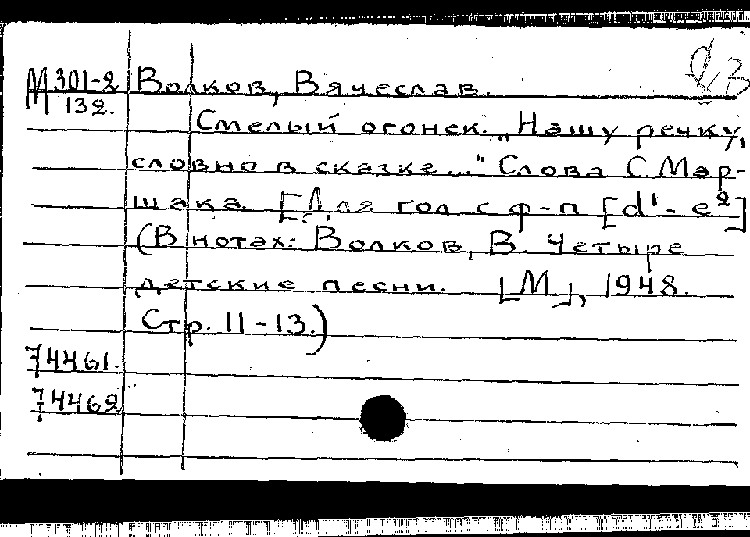 М 301-2 Волков, Вячеслав.
132.
Смелый огонек. „Нашу речку,
словно в сказке..." Слова С. Мар-
шака. [Для гол. с ф-п. [d¹-e²]
(В нотах: Волков, В. Четыре
детские песни. [М], 1948.
Стр. 11-13.)
74461.
74462